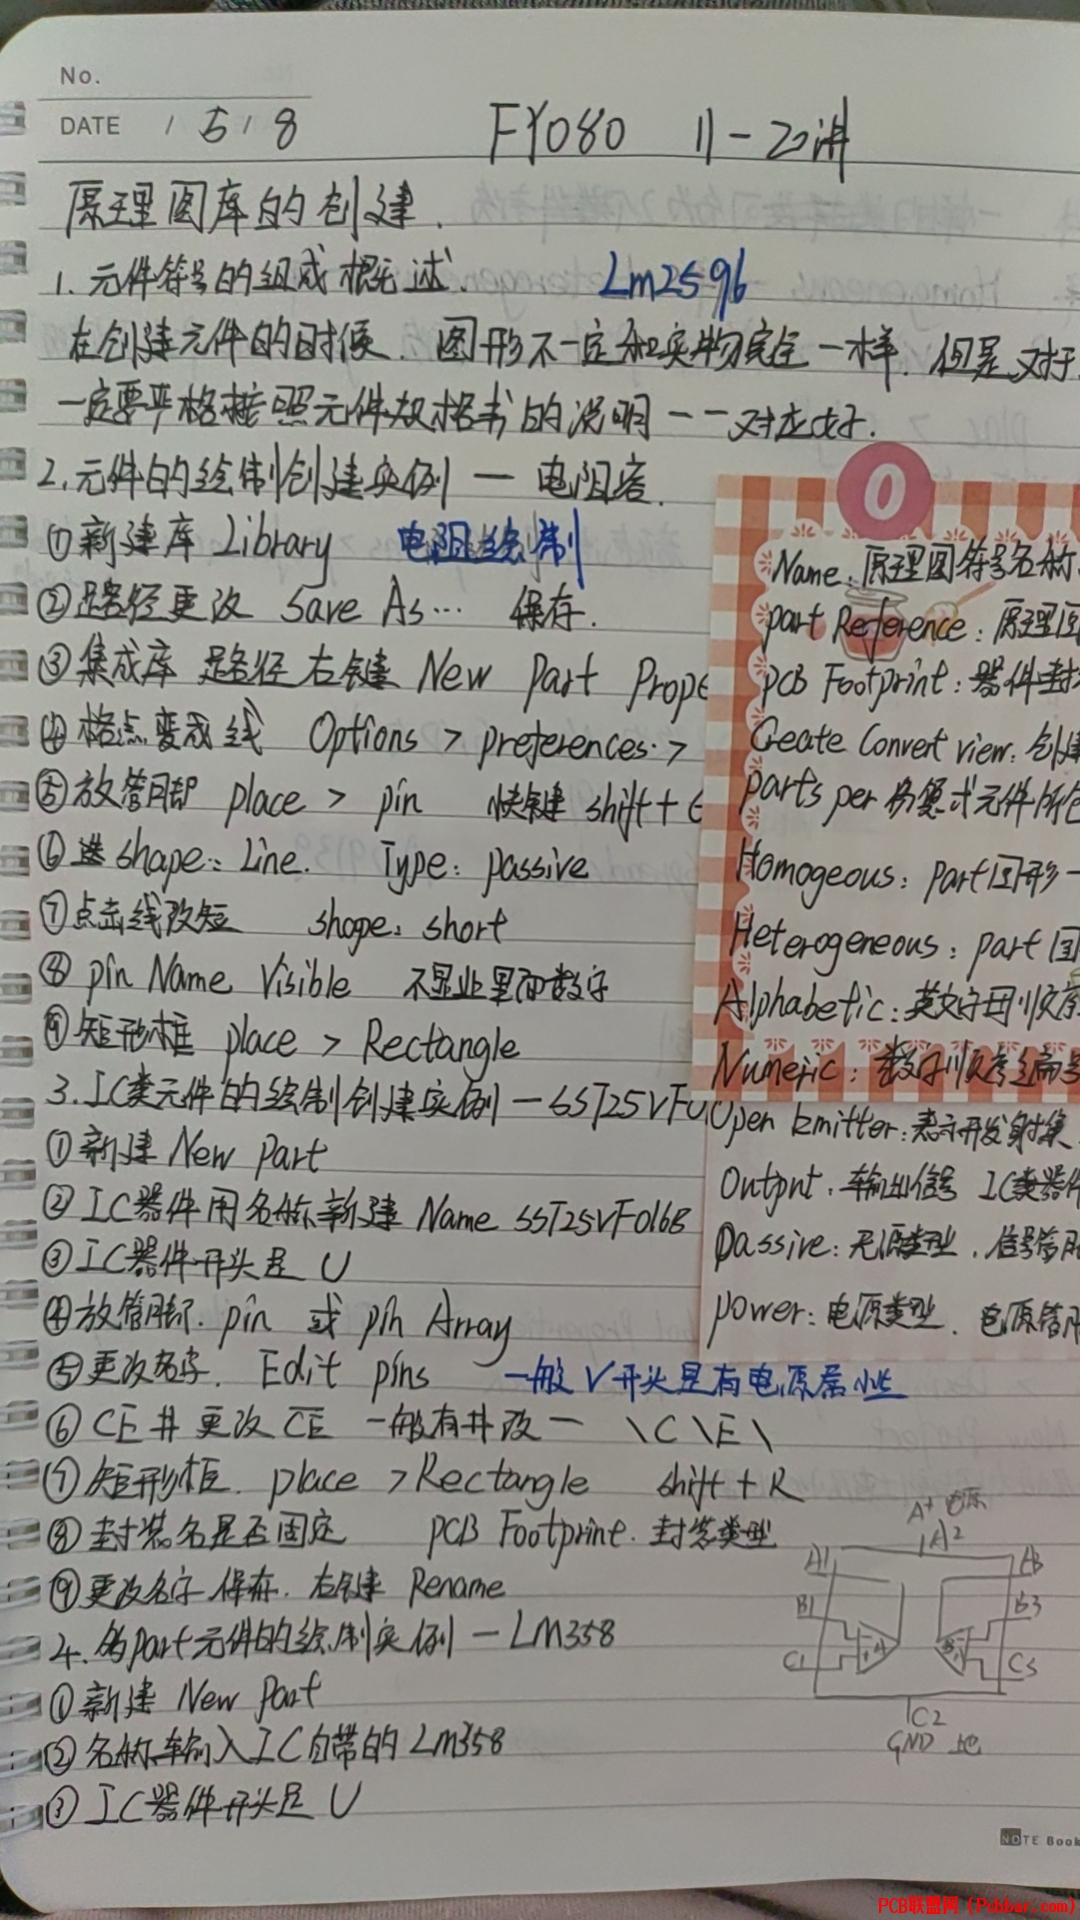 No.
DATE / 5 / 8
FY080 11-20讲
原理图库的创建.
1. 元件符号的组成概述. Lm2596
在创建元件的时候. 图形不一定和实物完全一样. 但是对于
一定要严格按照元件规格书的说明一一对应好.
2. 元件的绘制创建实例 — 电阻容.
①新建库 Library 电阻绘制
②路径更改 Save As… 保存.
③集成库 路径右键 New Part Prope
④格点变成线 Options > preferences. >
⑤放管脚 place > pin 快键 shift +
⑥选 shape: Line. Type: passive
⑦点击线改短 shape: short
⑧ pin Name Visible 不显业里面数字
⑨矩形框 place > Rectangle
3. IC类元件的绘制创建实例 — SST25VF0
①新建 New Part
②IC器件用名称新建 Name SST25VF016B
③IC器件开头是 U
④放管脚. pin 或 pin Array
⑤更改名字. Edit pins 一般V开头是有电源属性
⑥ CE# 更改 CE 一般有#改一 \C\E\
⑦矩形框. place > Rectangle shift + R
⑧封装名是否固定 PCB Footprint. 封装类型
⑨更改名字保存. 右键 Rename
4. 多part元件的绘制实例 — LM358
①新建 New Part
②名称输入IC自带的 Lm358
③IC器件开头是 U
O
Name: 原理图符号名称.
part Reference: 原理图
PCB Footprint: 器件封
Create Convert view: 创建
parts per 多复式元件所包
Homogeous: part图形一
Heterogeneous: part 图
Alphabetic: 英文字母顺序
Numeric: 数字顺序编号
Open Emitter: 表示开发射集
Output. 输出信号 IC类器件
Passive: 无源类型. 信号管脚
power: 电源类型. 电源管脚
A+ 电源
A2
A1
B1
C1
A
B
B3
C3
C2
GND 地
NOTE Book
PCB联盟网 (Pcbbar.com)